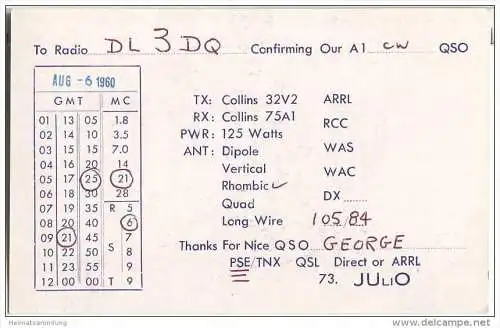 To Radio DL 3 DQ Confirming Our A1 CW QSO
AUG - 6 1960
GMT MC
01 13 05 1.8
02 14 10 3.5
03 15 15 7.0
04 16 20 14
05 17 25 21
06 18 30 28
07 19 35 R 5
08 20 40 6
09 21 45 7
10 22 50 S 8
11 23 55 9
12 00 00 T 9
TX: Collins 32V2 ARRL
RX: Collins 75A1 RCC
PWR: 125 Watts WAS
ANT: Dipole
Vertical WAC
Rhombic ✓
Quad DX
Long Wire 105/84
Thanks For Nice QSO GEORGE
PSE/TNX QSL Direct or ARRL
73. JULIO
Heimatsammlung